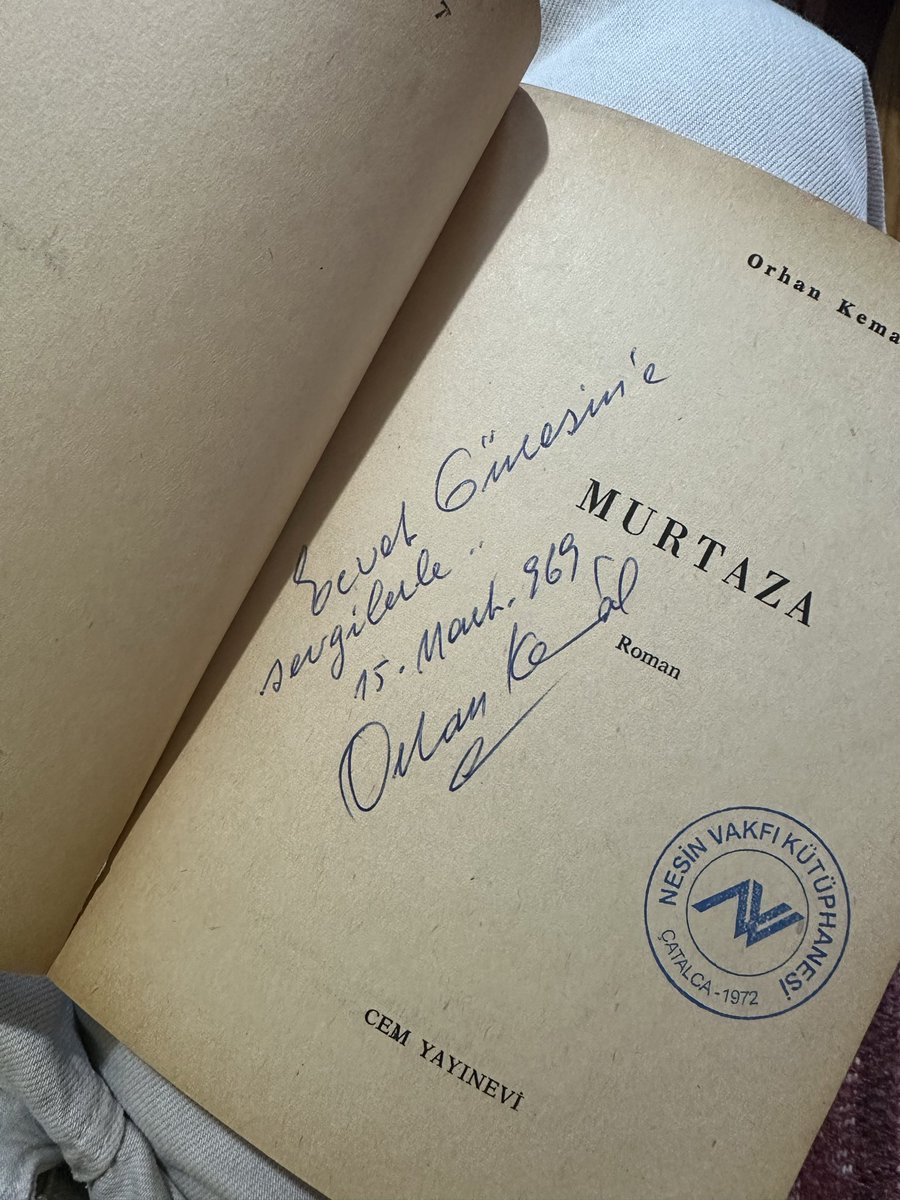 Orhan Kema
MURTAZA
Roman
sevgilerle..
15. Mart. 969
Orhan Kemal
NESİN VAKFI KÜTÜPHANESİ
ÇATALCA - 1972
CEM YAYINEVİ